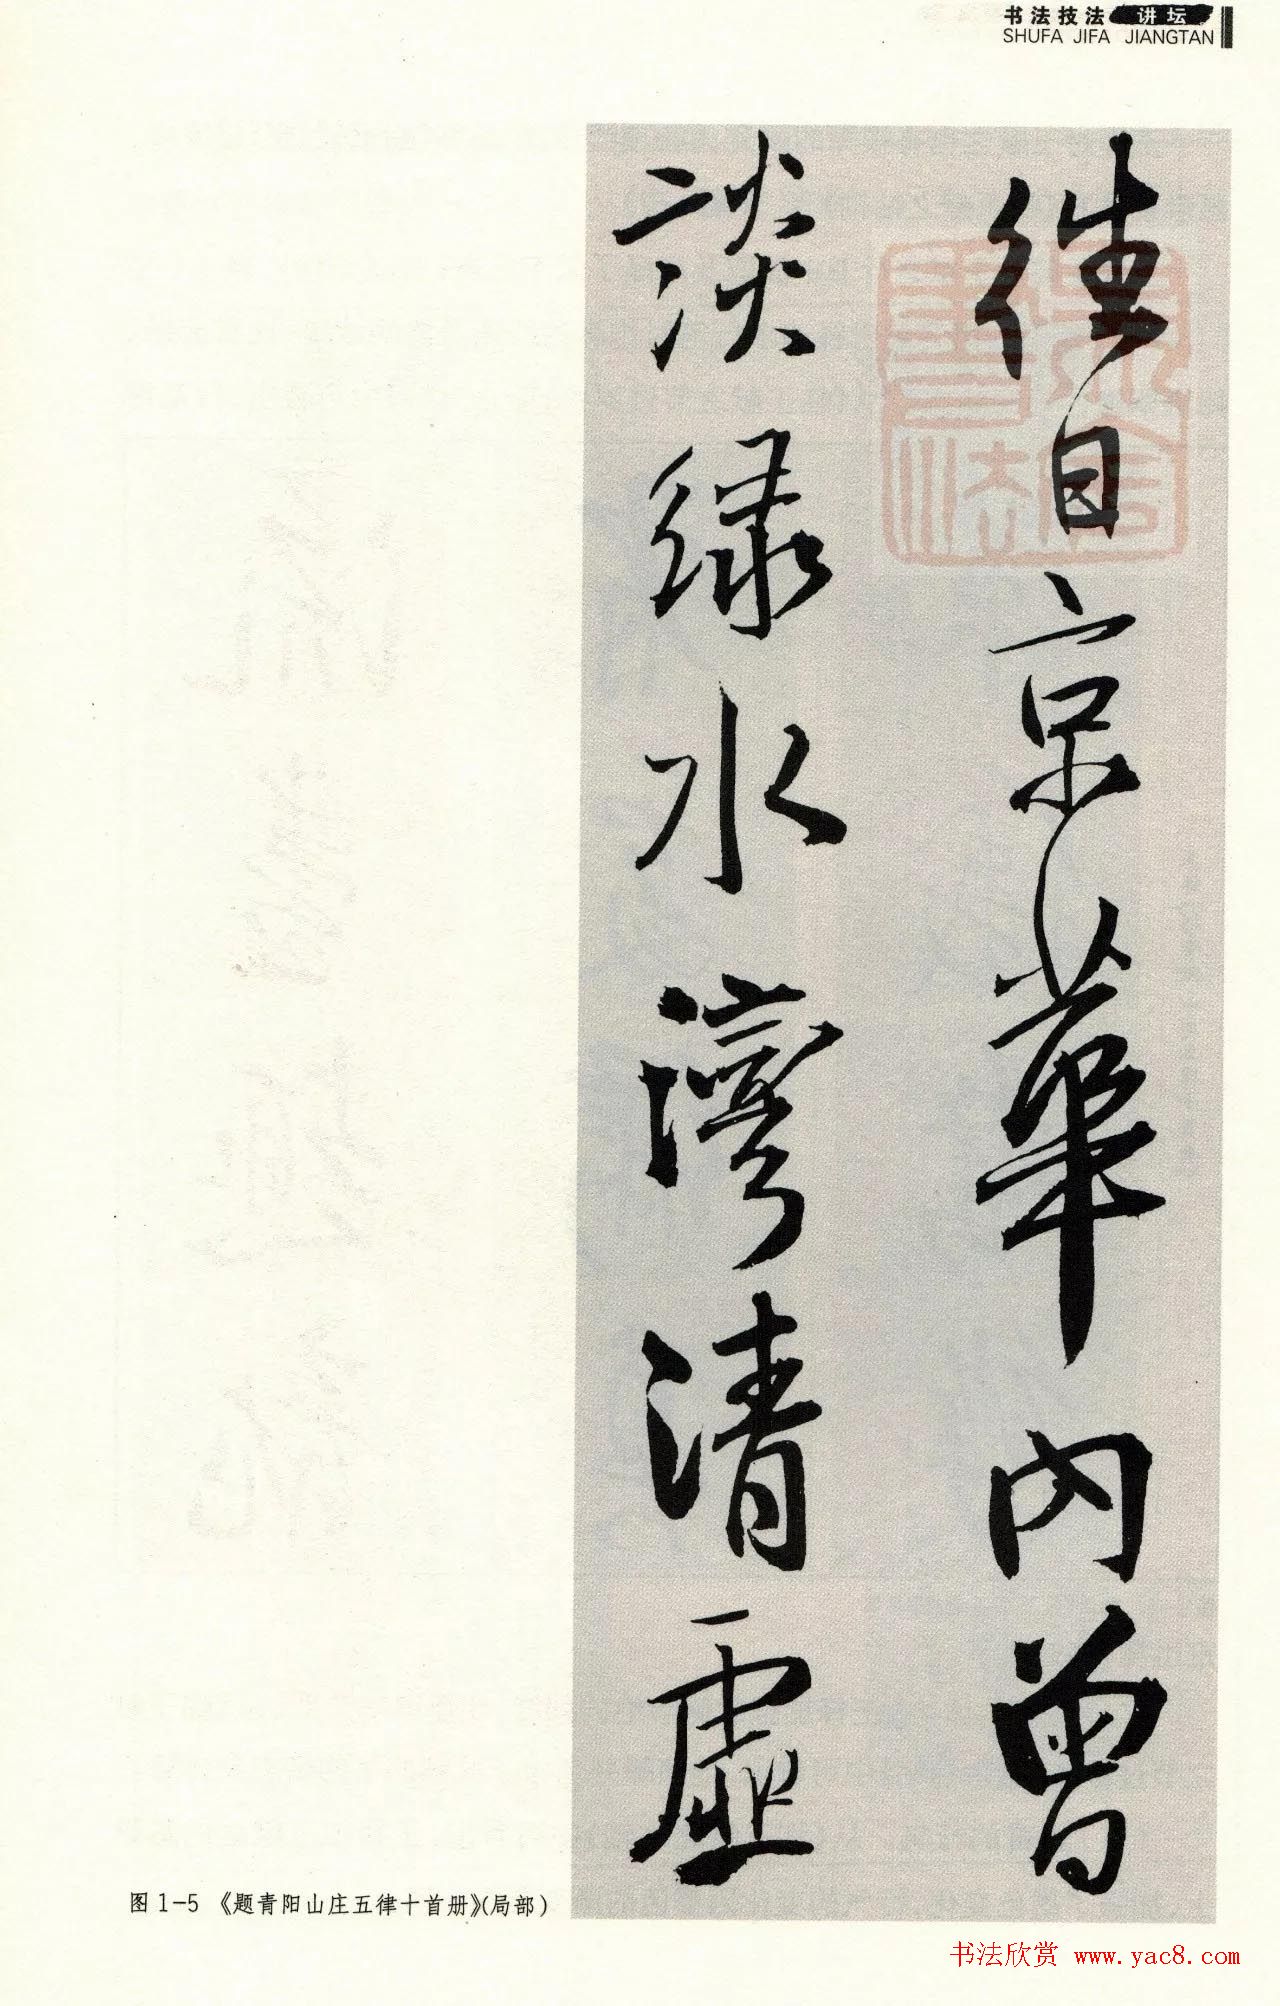 书法技法 讲坛
SHUFA JIFA JIANGTAN
往日京華内曾
談緑水灣清虚
图1-5 《题青阳山庄五律十首册》(局部)
书法欣赏 www.yac8.com